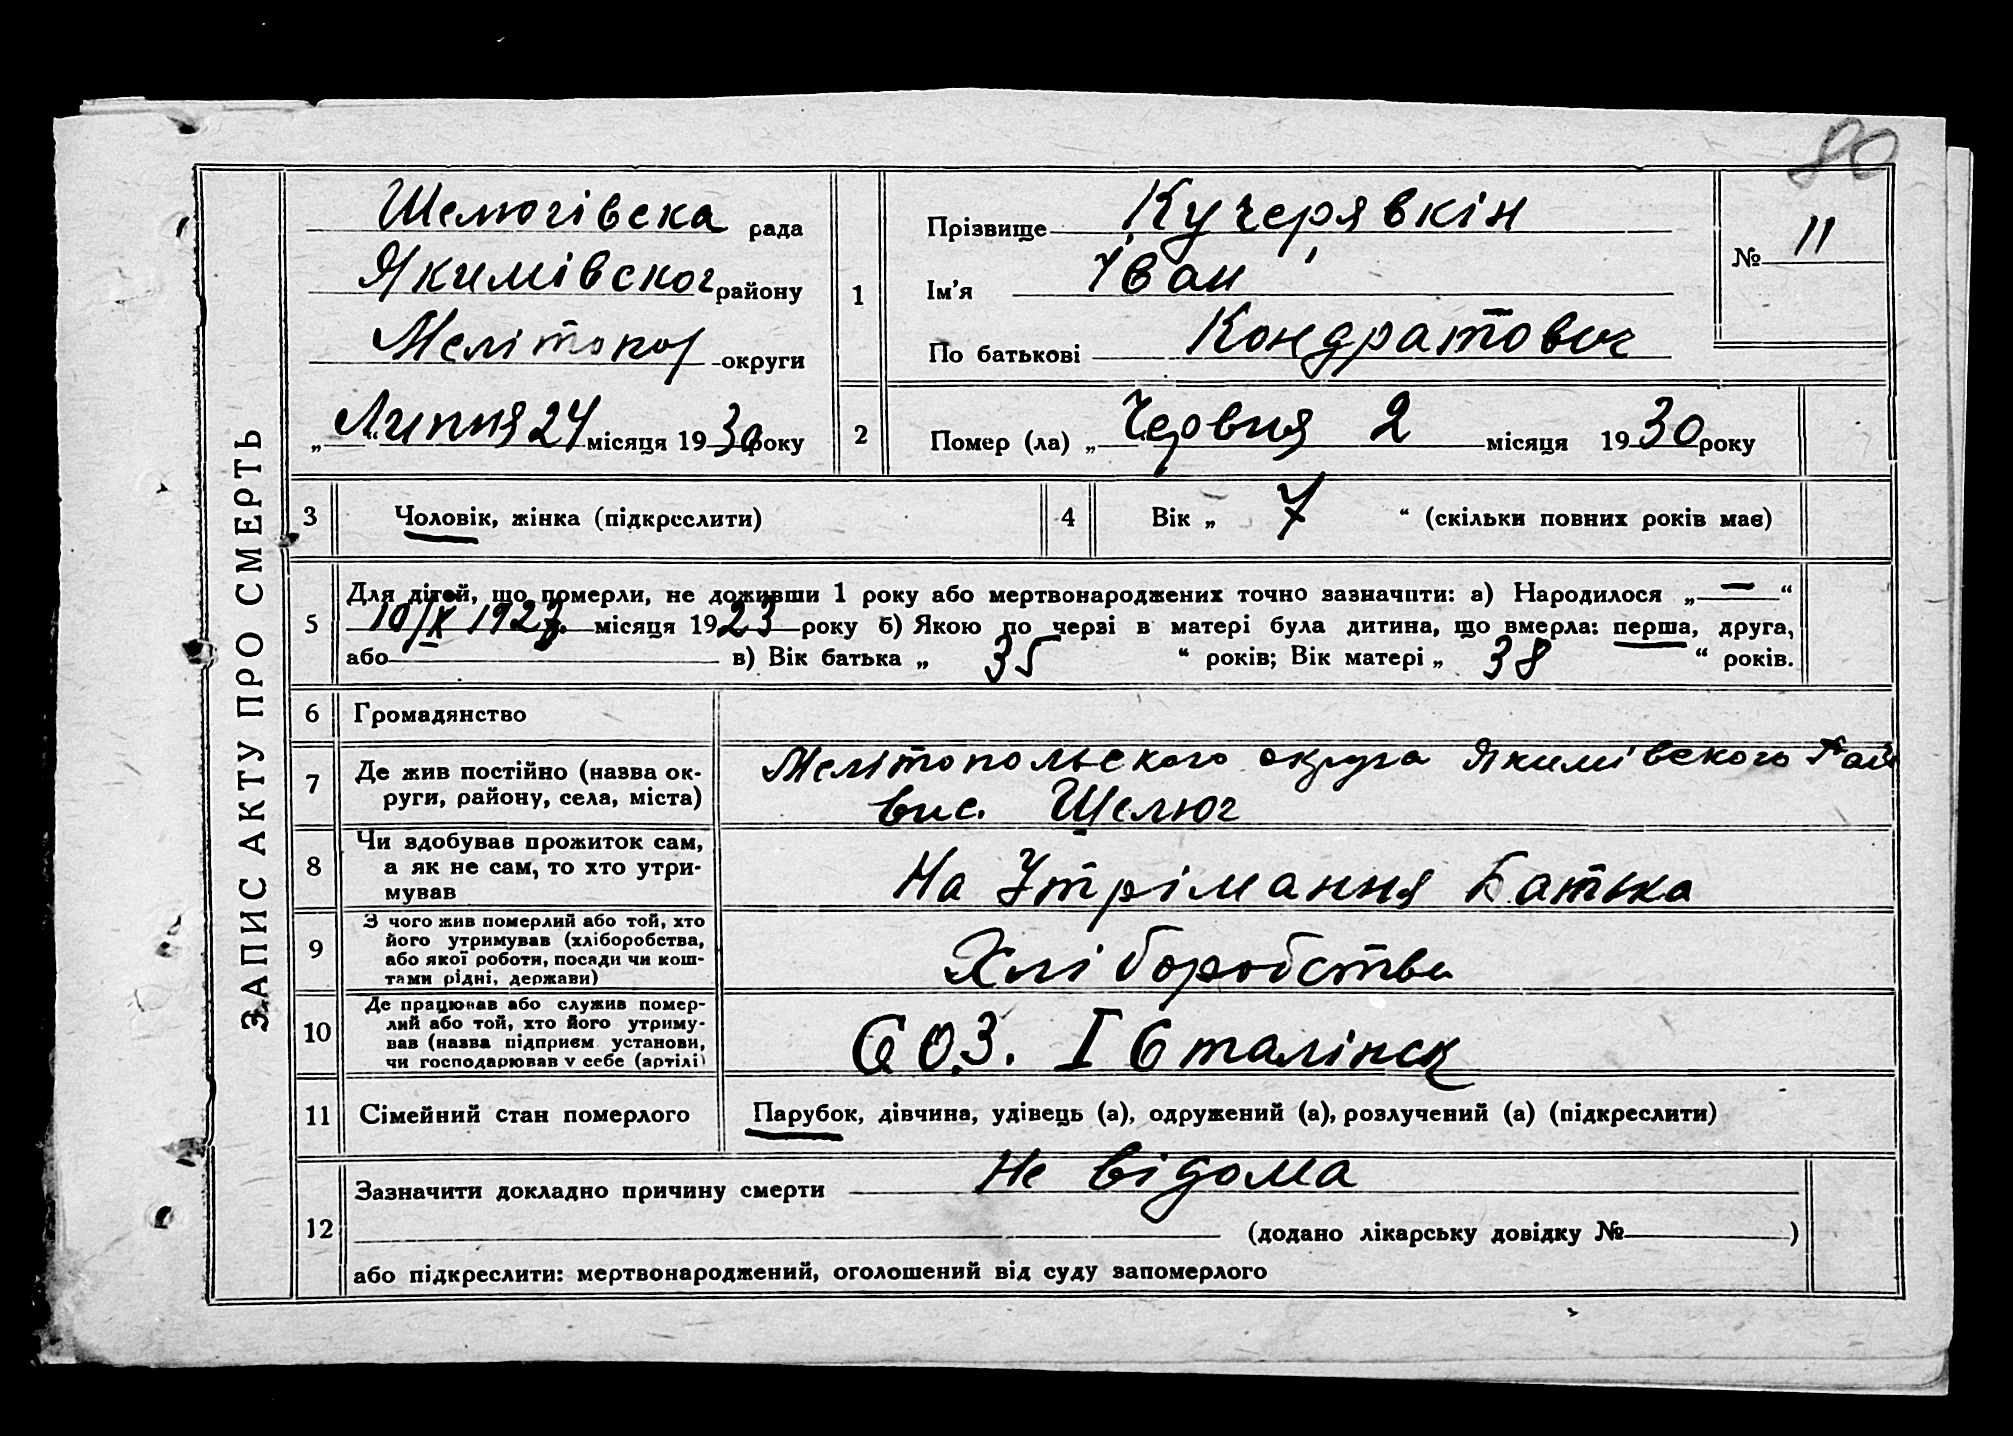 80
ЗАПИС АКТУ ПРО СМЕРТЬ
Шелюгівська рада
Якимівског району
Меліпопол округи
„ Липня 24 місяця 1930 року
1
Прізвище Кучерявкін
Ім'я Іван
По батькові Кондратович
№ 11
2
Помер (ла) „ Червня 2 місяця 1930 року
3 Чоловік, жінка (підкреслити)
4 Вік „ 7 “ (скільки повних років має)
5 Для дітей, що померли, не доживши 1 року або мертвонароджених точно зазначити: а) Народилося „ — “
10/IX 1923 місяця 1923 року б) Якою по черзі в матері була дитина, що вмерла: перша, друга,
або в) Вік батька „ 35 “ років; Вік матері „ 38 “ років.
6 Громадянство
7 Де жив постійно (назва ок-
руги, району, села, міста)
Мелітопольского округа Якимівского Рай
вис. Шелюг
8 Чи здобував прожиток сам,
а як не сам, то хто утри-
мував
На Утрімання Батька
9 З чого жив померлий або той, хто
його утримував (хліборобства,
або якої роботи, посади чи кош-
тами рідні, держави)
Хліборобства
10 Де працював або служив помер-
лий або той, хто його утриму-
вав (назва підприєм. установи,
чи господарював у себе (артілі)
СОЗ. І Сталінск
11 Сімейний стан померлого
Парубок, дівчина, удівець (а), одружений (а), розлучений (а) (підкреслити)
12 Зазначити докладно причину смерти Не відома
(додано лікарську довідку № )
або підкреслити: мертвонароджений, оголошений від суду запомерлого